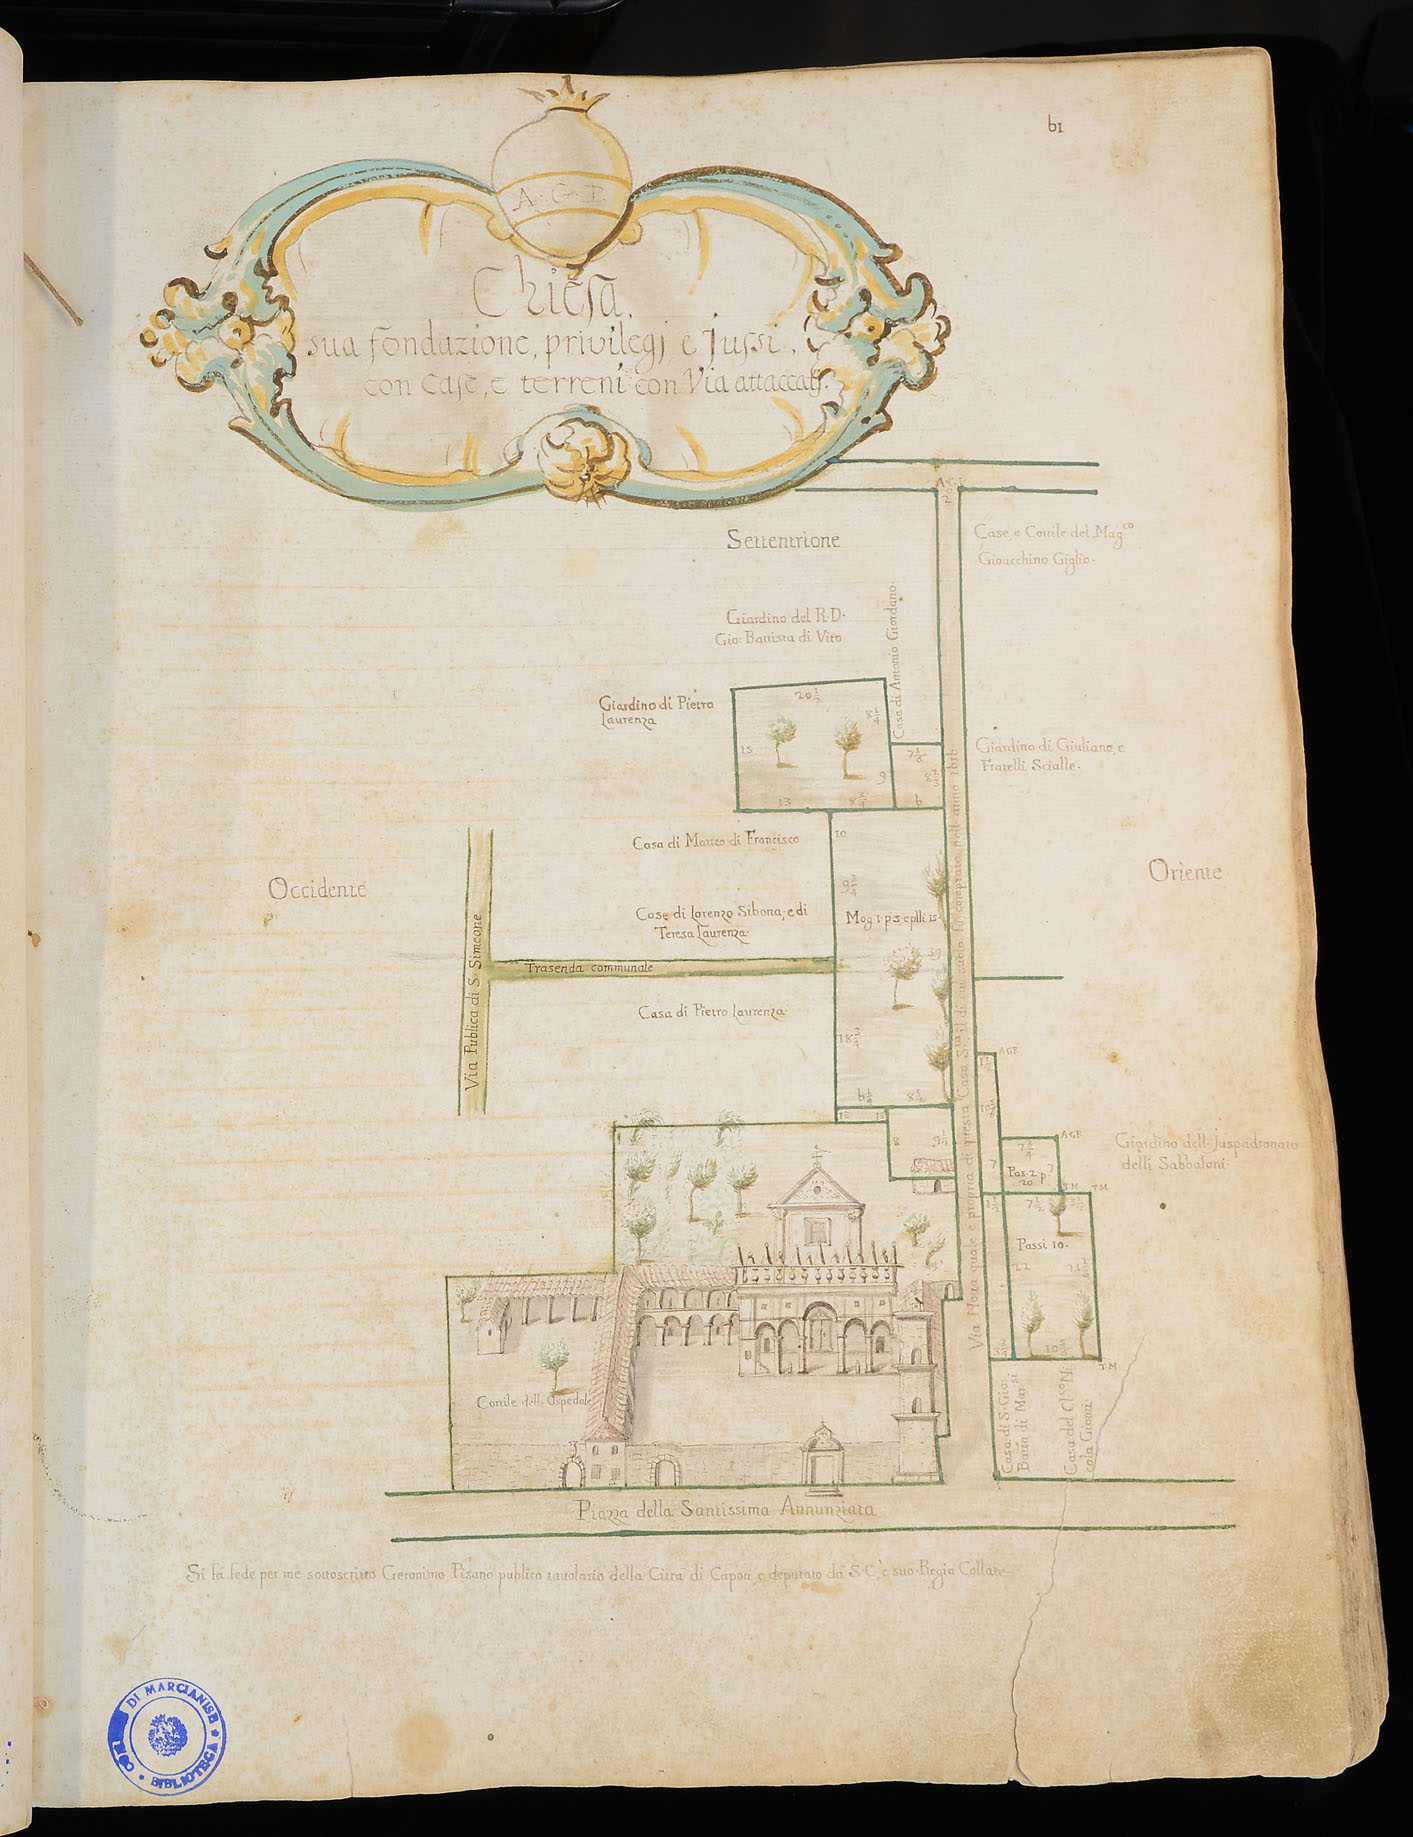 61
A. G. P.
Chiesa,
sua fondazione, privilegj e Jussi,
con case, e terreni con Via attaccati.
Settentrione
Case, e Cortile del Mag.co
Gioacchino Giglio.
Giardino del R. D.
Gio: Battista di Vito
Casa di Antonio Giordano.
Giardino di Pietro
Laurenza
20 1/2
8 1/4
15
9
13
8 3/4
7 1/6
6
Giardino di Giuliano, e
Fratelli Scialle.
Casa di Matteo di Francisco
10
9 3/4
Occidente
Oriente
Case di Lorenzo Sibona, e di
Teresa Laurenza.
Mog. 1. p. 5. e plli 15.
39
Via Publica di S. Simeone
Trasenda communale
Casa di Pietro Laurenza.
18 3/4
6 1/4
8 1/2
8
9 1/2
Via Nova quale è propria di questa Casa S.ta il di cui suolo fu comprato nell'anno 1616
AGP
AGP
7
7
Pas. 2 p.
20
T.M.
T.M.
Giardino dell. Juspadronato
delli Sabbatoni.
7 1/2
Passi 10.
22
10
T.M.
Cortile dell. Ospedale
Casa di S. Gio:
Batta di Marsi
Casa del Cl.co Ni
cola Gionti
Piazza della Santissima Annunziata
Si fà fede per me sottoscritto Geronimo Pisano publico tavolario della Città di Capoa, e deputato dà S. C., e suo Regio Collate
DI MARCIANISE
BIBLIOTECA